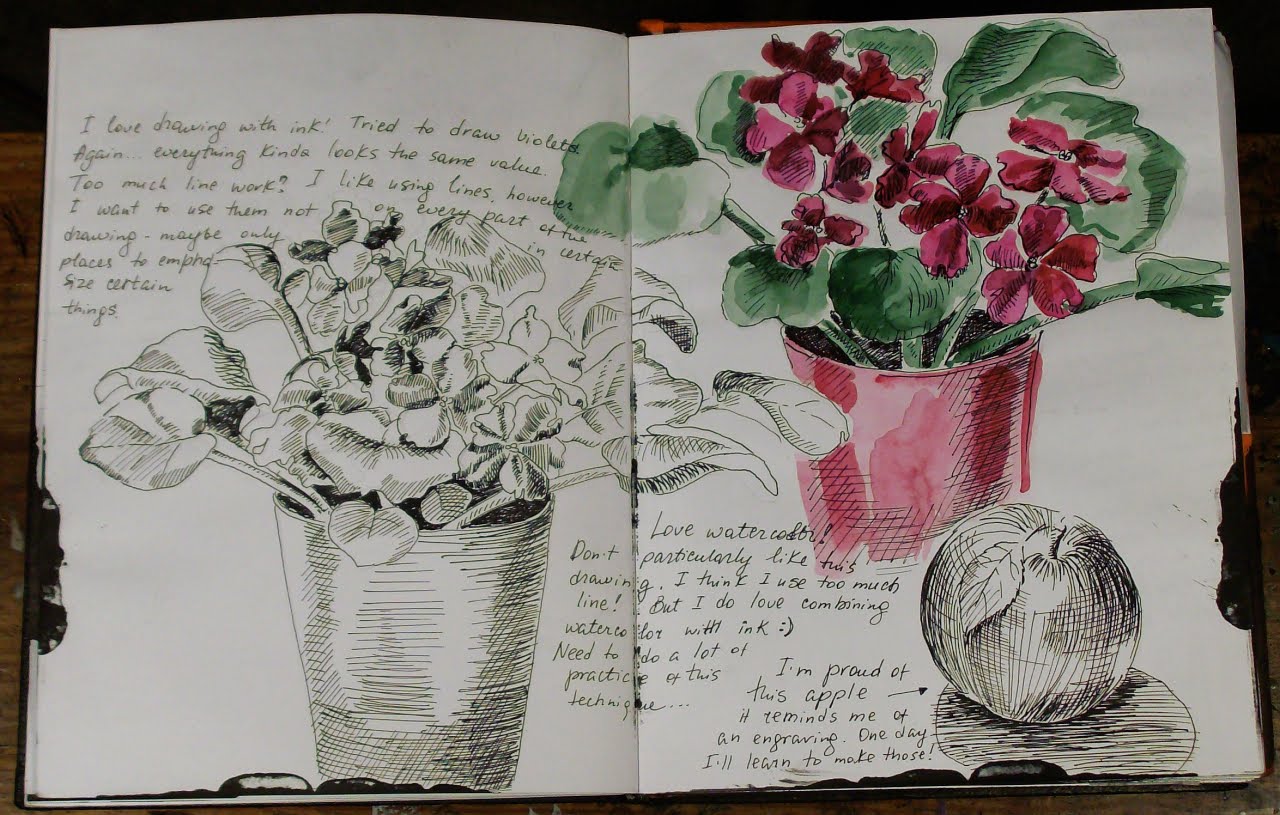 I love drawing with ink! Tried to draw violets.
Again... everything kinda looks the same value.
Too much line work? I like using lines, however
I want to use them not on every part of the
drawing - maybe only in certain
places to empha-
size certain
things.
Love watercolor!
Don't particularly like this
drawing. I think I use too much
line! But I do love combining
watercolor with ink :)
Need to do a lot of
practice of this
technique...
I'm proud of
this apple →
it reminds me of
an engraving. One day
I'll learn to make those!